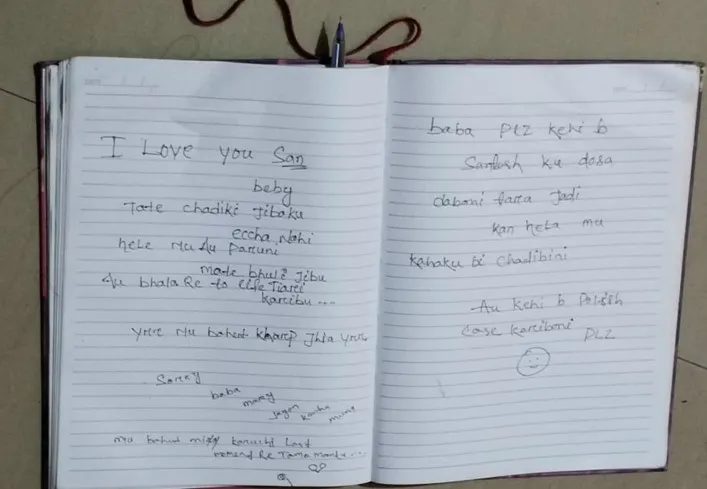 I Love you San
beby
Tate chadiki Jibaku
eccha Nahi
hele Mu Au Paruni
mate bhuli Jibu
Au bhala Re to life Tiarei
karibu...
yrrr Mu bahut kharap Jhia yrrr
Sorry
baba
mamy
Jagan
kanha
muna
mu bahut miss karuchi Last
moment Re Tama mante...
baba PLZ kehi b
Santosh ku dosa
dabani tara Jadi
kan hela mu
kahaku bi Chadibini
Au kehi b Police
case karibani PLZ